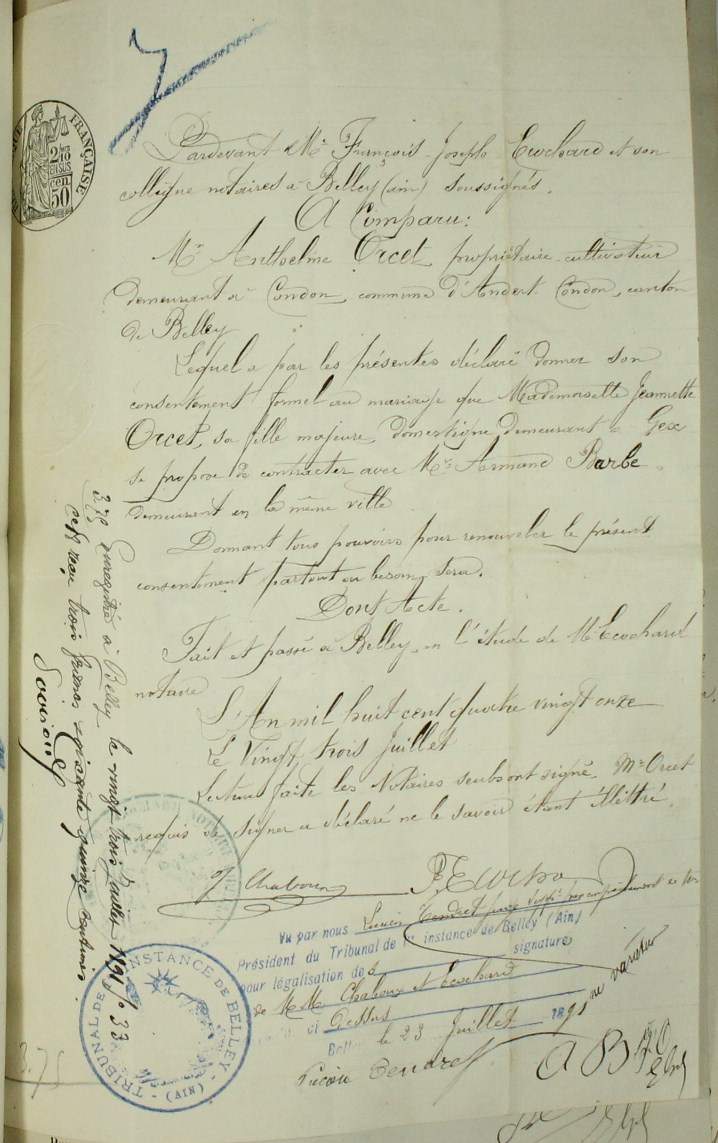 FRANÇAISE
2/10 EN SUS
50 cen
Pardevant Me François Joseph Ecochard et son
collègue notaires à Belley (ain) soussignés.
A Comparu:
Mr Anthelme Orcet, propriétaire cultivateur
demeurant à Condon, commune d'Andert Condon, canton
de Belley
Lequel a par les présentes déclaré donner son
consentement formel au mariage que Mademoiselle Jeannette
Orcet, sa fille majeure, domestique, demeurant à Gex
se propose de contracter avec Mr Armand Barbe.
demeurant en la même ville
Donnant tous pouvoirs pour renouveler le présent
consentement partout où besoin sera.
Dont Acte.
Fait et passé à Belley, en l'étude de Me Ecochard
notaire
L'An mil huit cent quatre vingt onze
Le Vingt trois Juillet
Lecture faite les Notaires seuls ont signé, Mr Orcet
requis de signer a déclaré ne le savoir étant illettré.
Chaboux
Enregistré à Belley le vingt trois Juillet 1891, f 33
reçu trois francs soixante quinze centimes
Vu par nous Lucien Tendret juge
Président du Tribunal de 1re instance de Belley (Ain)
pour légalisation de s signatures
de MM. Chaboux et Ecochard
et Dessus
Belley le 23 Juillet 1891
Lucien Tendret
ne varietur
A B
TRIBUNAL DE 1re INSTANCE DE BELLEY
(AIN)
3.75